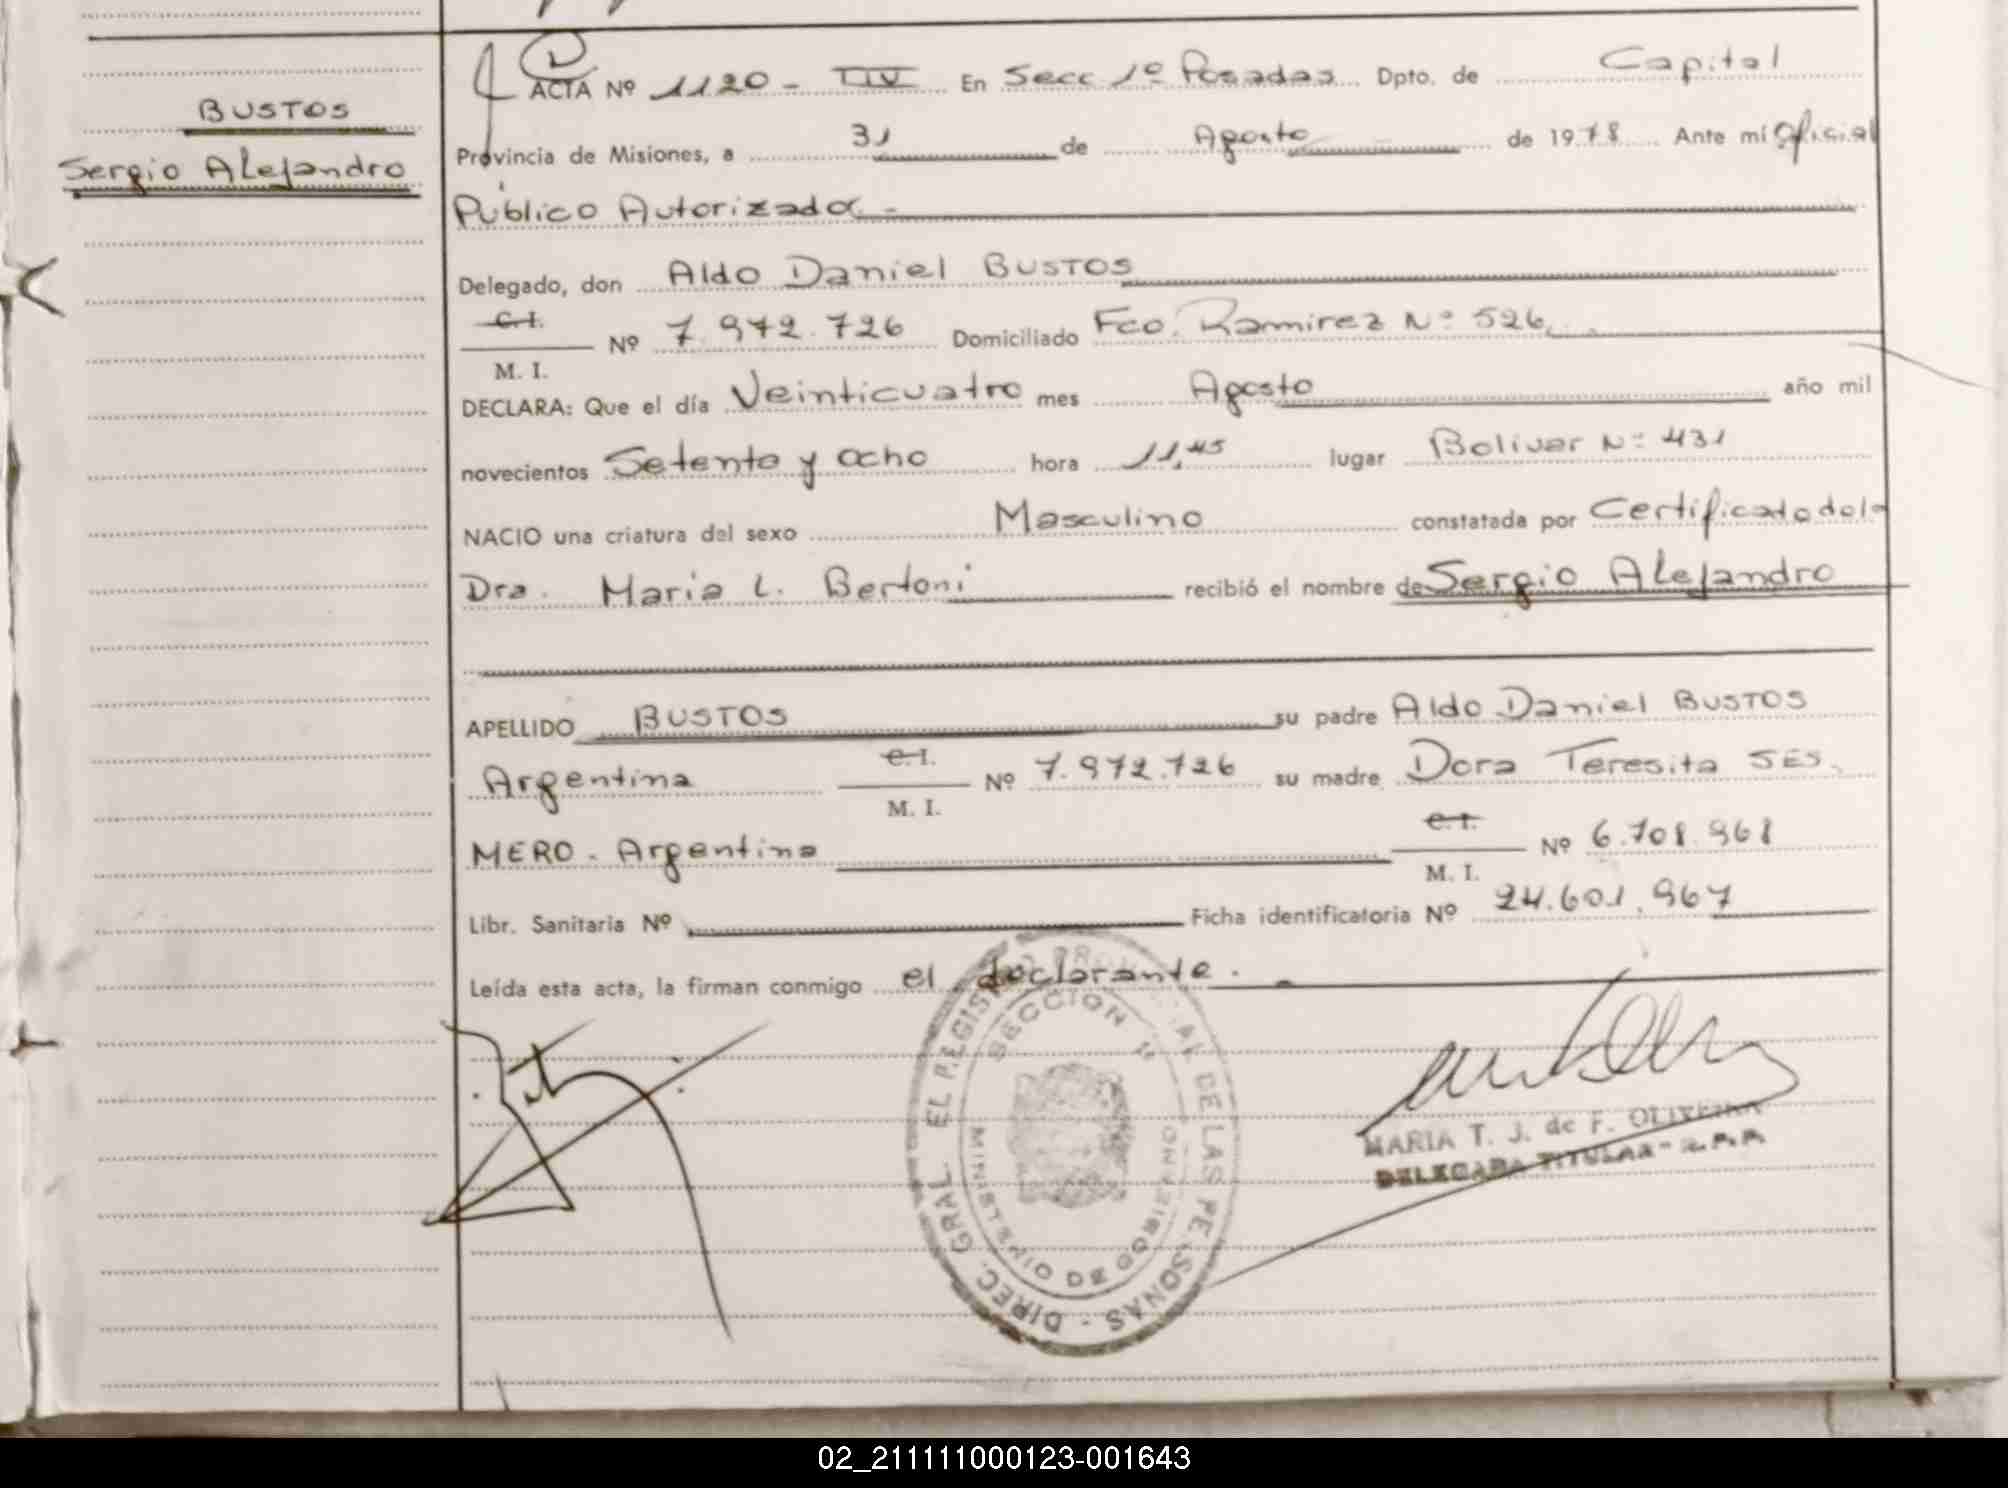 BUSTOS
Sergio Alejandro
ACTA Nº 1120 - TIV En Secc 1º Posadas Dpto. de Capital
Provincia de Misiones, a 31 de Agosto de 1978 Ante mí Oficial
Público Autorizado.-
Delegado, don Aldo Daniel BUSTOS
C.I.
M. I. Nº 7.972.726 Domiciliado Fco. Ramirez Nº 526.
DECLARA: Que el día Veinticuatro mes Agosto año mil
novecientos Setenta y ocho hora 11,45 lugar Bolivar Nº 431
NACIO una criatura del sexo Masculino constatada por Certificado de la
Dra. Maria L. Bertoni recibió el nombre de Sergio Alejandro
APELLIDO BUSTOS su padre Aldo Daniel BUSTOS
Argentina C.I.
M. I. Nº 7.972.726 su madre Dora Teresita SES.
MERO - Argentina C.I.
M. I. Nº 6.708.968
Libr. Sanitaria Nº Ficha identificatoria Nº 24.601.967
Leída esta acta, la firman conmigo el declarante.
DIREC. GRAL. EL REGISTRO PROVINCIAL DE LAS PERSONAS -
SECCION 1ª
MINISTERIO DE GOBIERNO
MARIA T. J. de F. OLIVEIRA
DELEGADA TITULAR
02_211111000123-001643